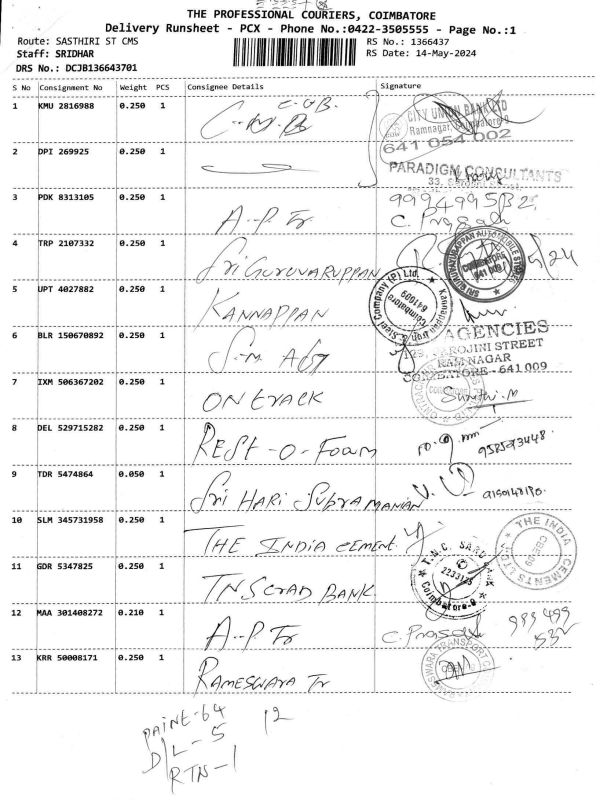 THE PROFESSIONAL COURIERS, COIMBATORE
Delivery Runsheet - PCX - Phone No.:0422-3505555 - Page No.:1
Route: SASTHIRI ST CMS
RS No.: 1366437
Staff: SRIDHAR
RS Date: 14-May-2024
DRS No.: DCJB136643701
S No Consignment No Weight PCS Consignee Details Signature
1 KMU 2816988 0.250 1
C-UB.
CITY UNION BANK LTD
Ramnagar, Coimbatore-9
641 054 002
2 DPI 269925 0.250 1
PARADIGM CONSULTANTS
3 PDK 8313105 0.250 1 A-P Tr
C. Prasath
4 TRP 2107332 0.250 1 Sri Guruvaruppan
SRI GURUVAYURAPPAN AUTOMOBILE STORES
COIMBATORE
641 009
5 UPT 4027882 0.250 1 KANNAPPAN
Kannappan Iron & Steel Company (P) Ltd.
Coimbatore
641009
6 BLR 150670892 0.250 1 S.M. Agy
AGENCIES
SAROJINI STREET
RAM NAGAR
COIMBATORE - 641 009
7 IXM 506367202 0.250 1 ON track
8 DEL 529715282 0.250 1 REST-O-Foam
9 TDR 5474864 0.050 1 Sri HARI SUBRAMANIAN
10 SLM 345731958 0.250 1 THE INDIA CEMENT.
THE INDIA CEMENTS LTD.
CBE-09
11 GDR 5347825 0.250 1 TNSC BANK.
Coimbatore-9
12 MAA 301408272 0.210 1 A-P Tr
C. Prasath
13 KRR 50008171 0.250 1 RAMESWARA Tr
RAMESWARA TRANSPORT
PAINT-64 12
D/L-5
RTN-1